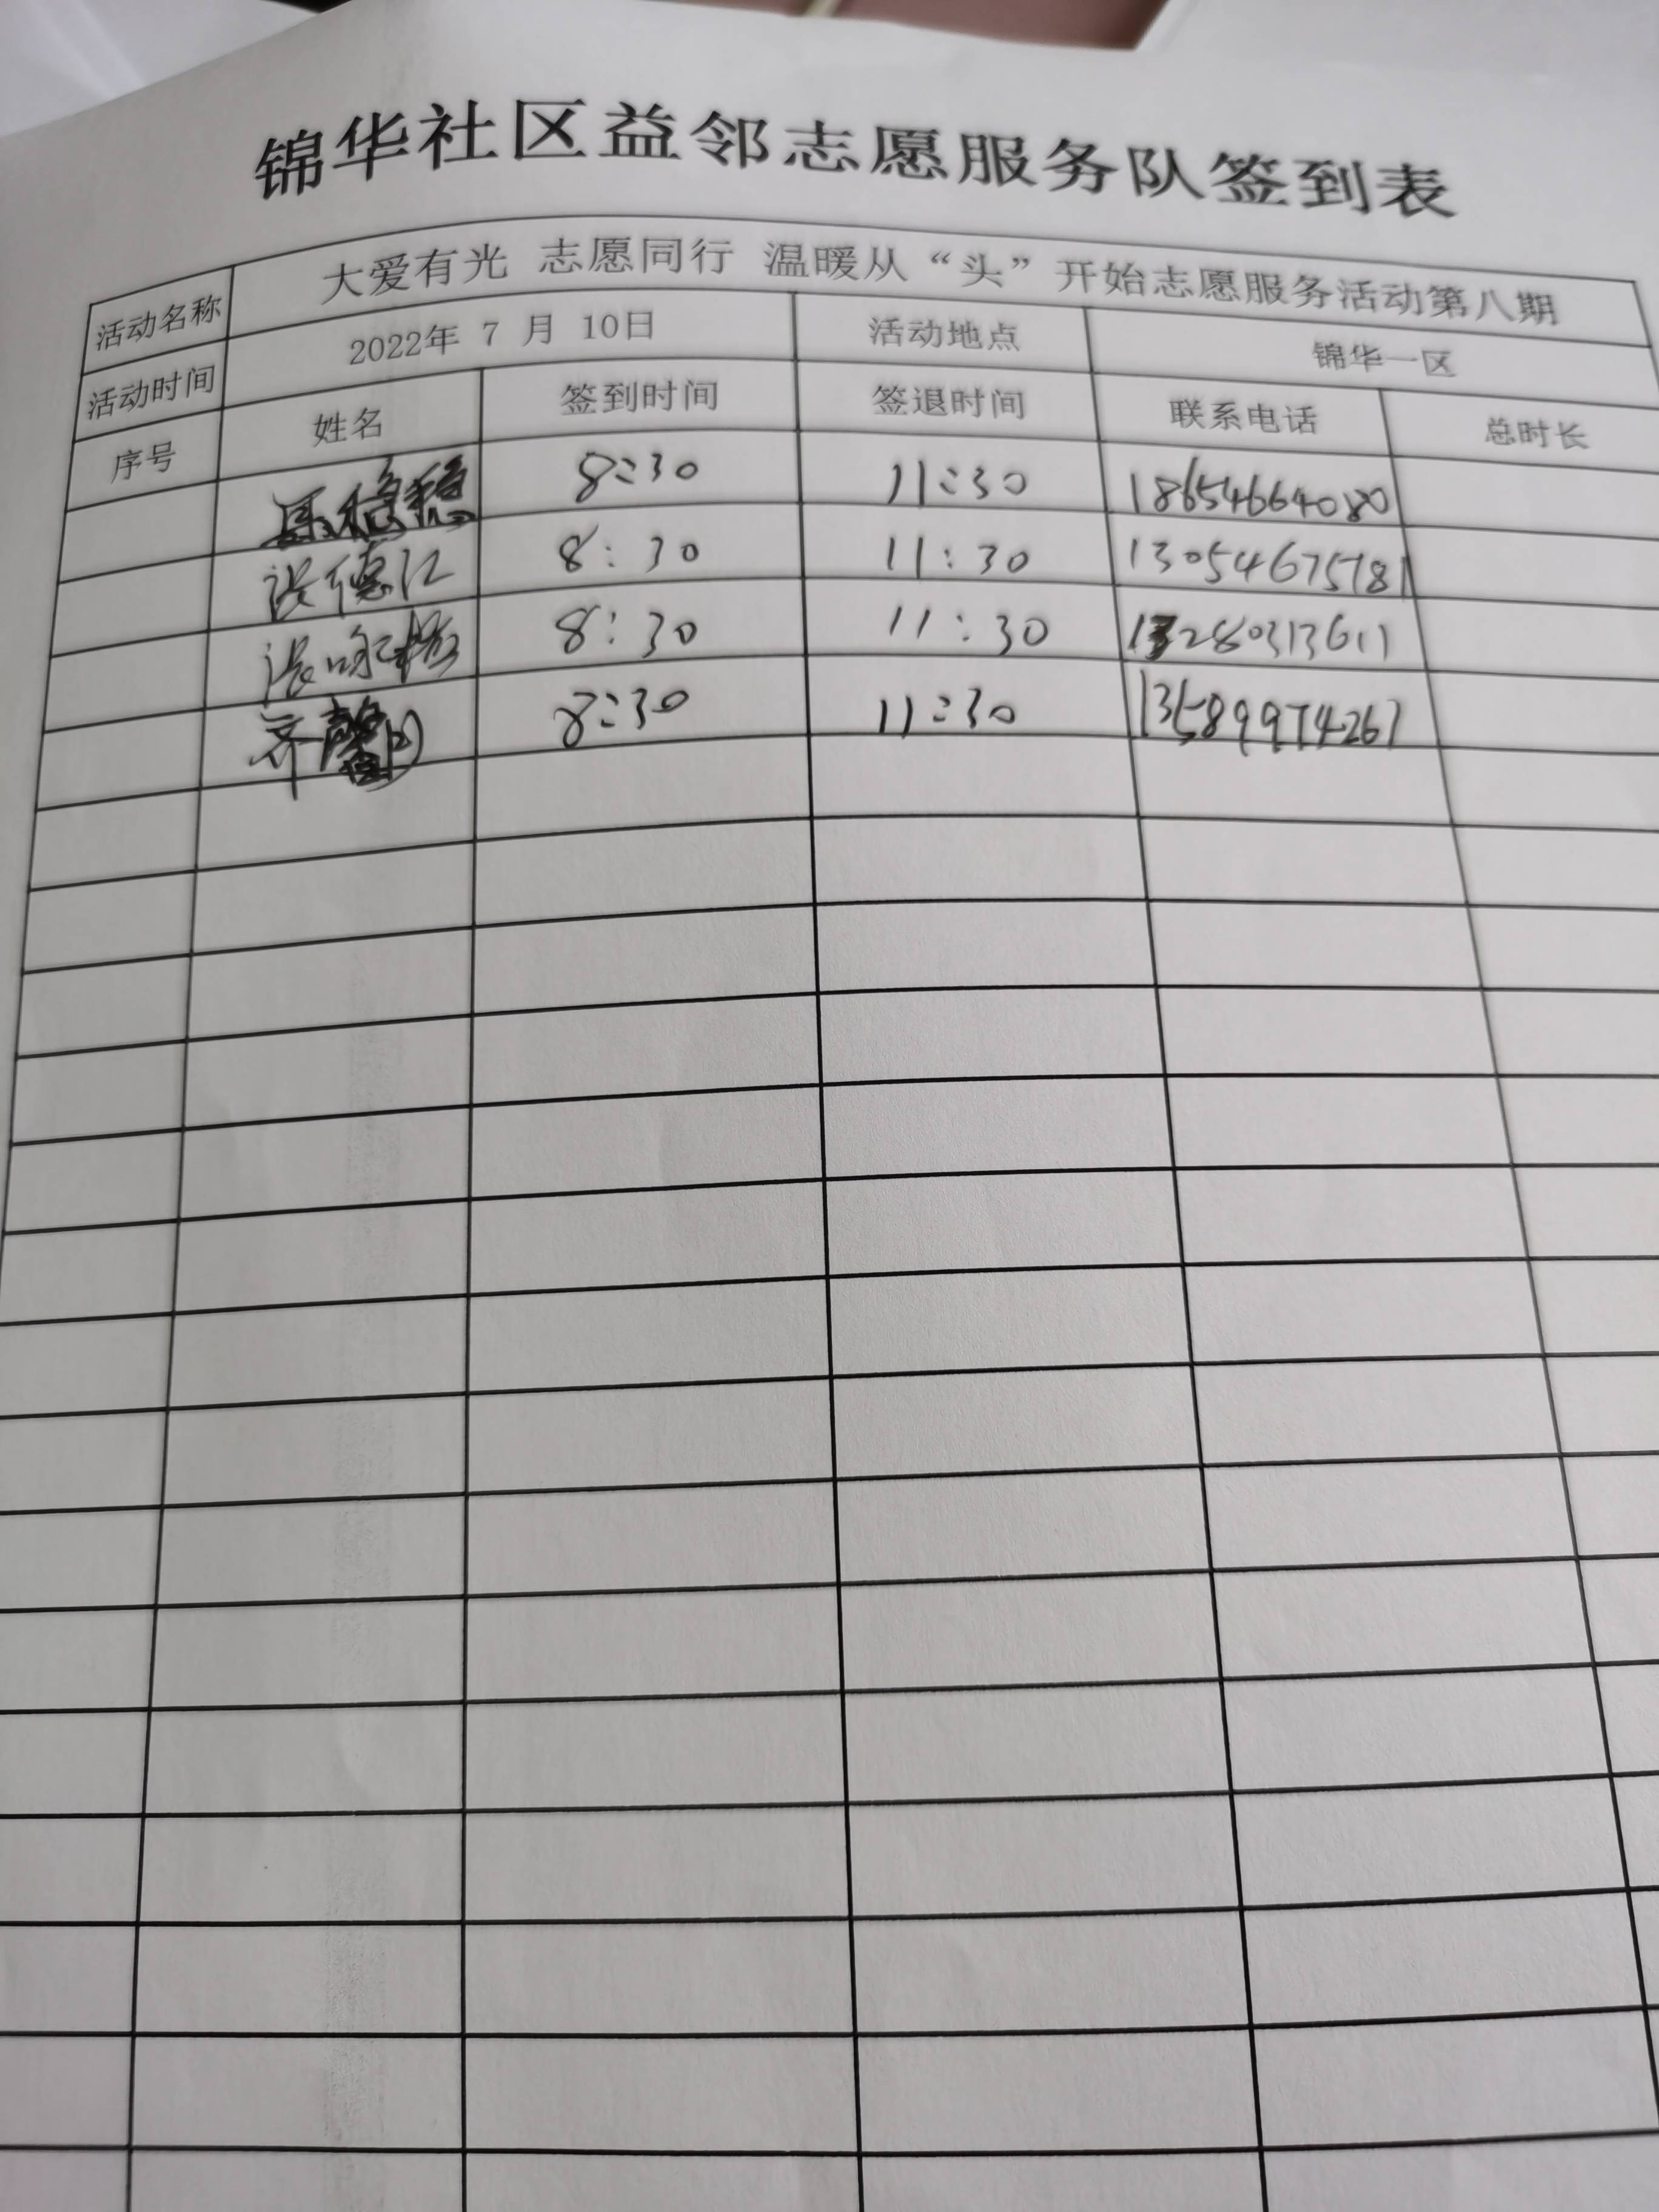 锦华社区益邻志愿服务队签到表
活动名称 大爱有光 志愿同行 温暖从“头”开始志愿服务活动第八期
活动时间 2022年 7 月 10日 活动地点 锦华一区
序号 姓名 签到时间 签退时间 联系电话 总时长
稳稳 8:30 11:30 18654664080
张德江 8:30 11:30 13054675781
张咏梅 8:30 11:30 13280313611
齐馨 8:30 11:30 13589974267